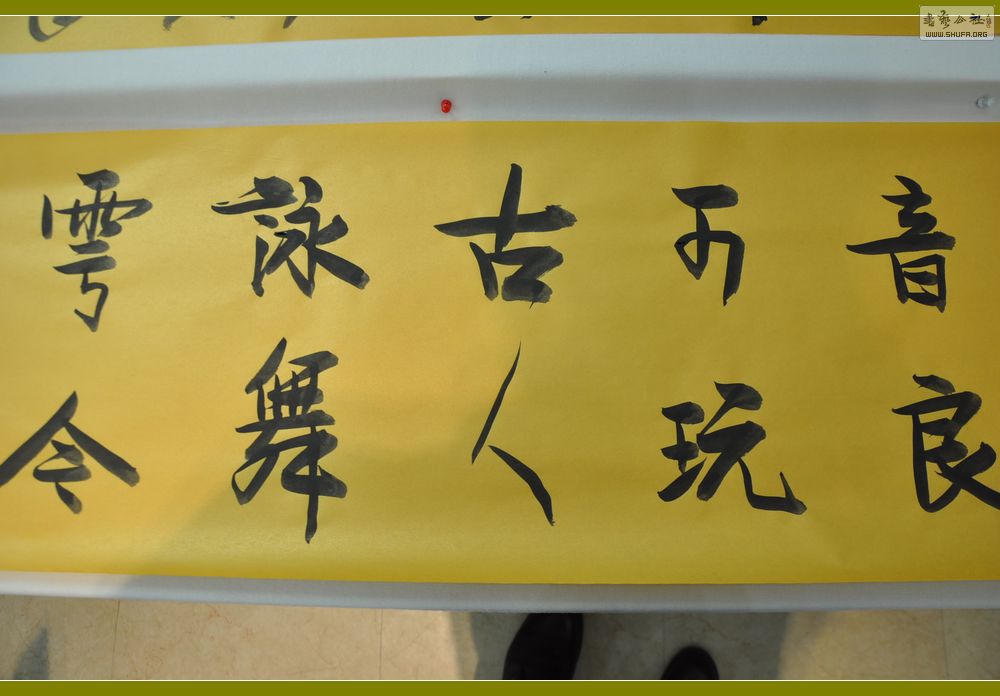 音良
可玩
古人
詠舞
雩今
書藝公社
WWW.SHUFA.ORG